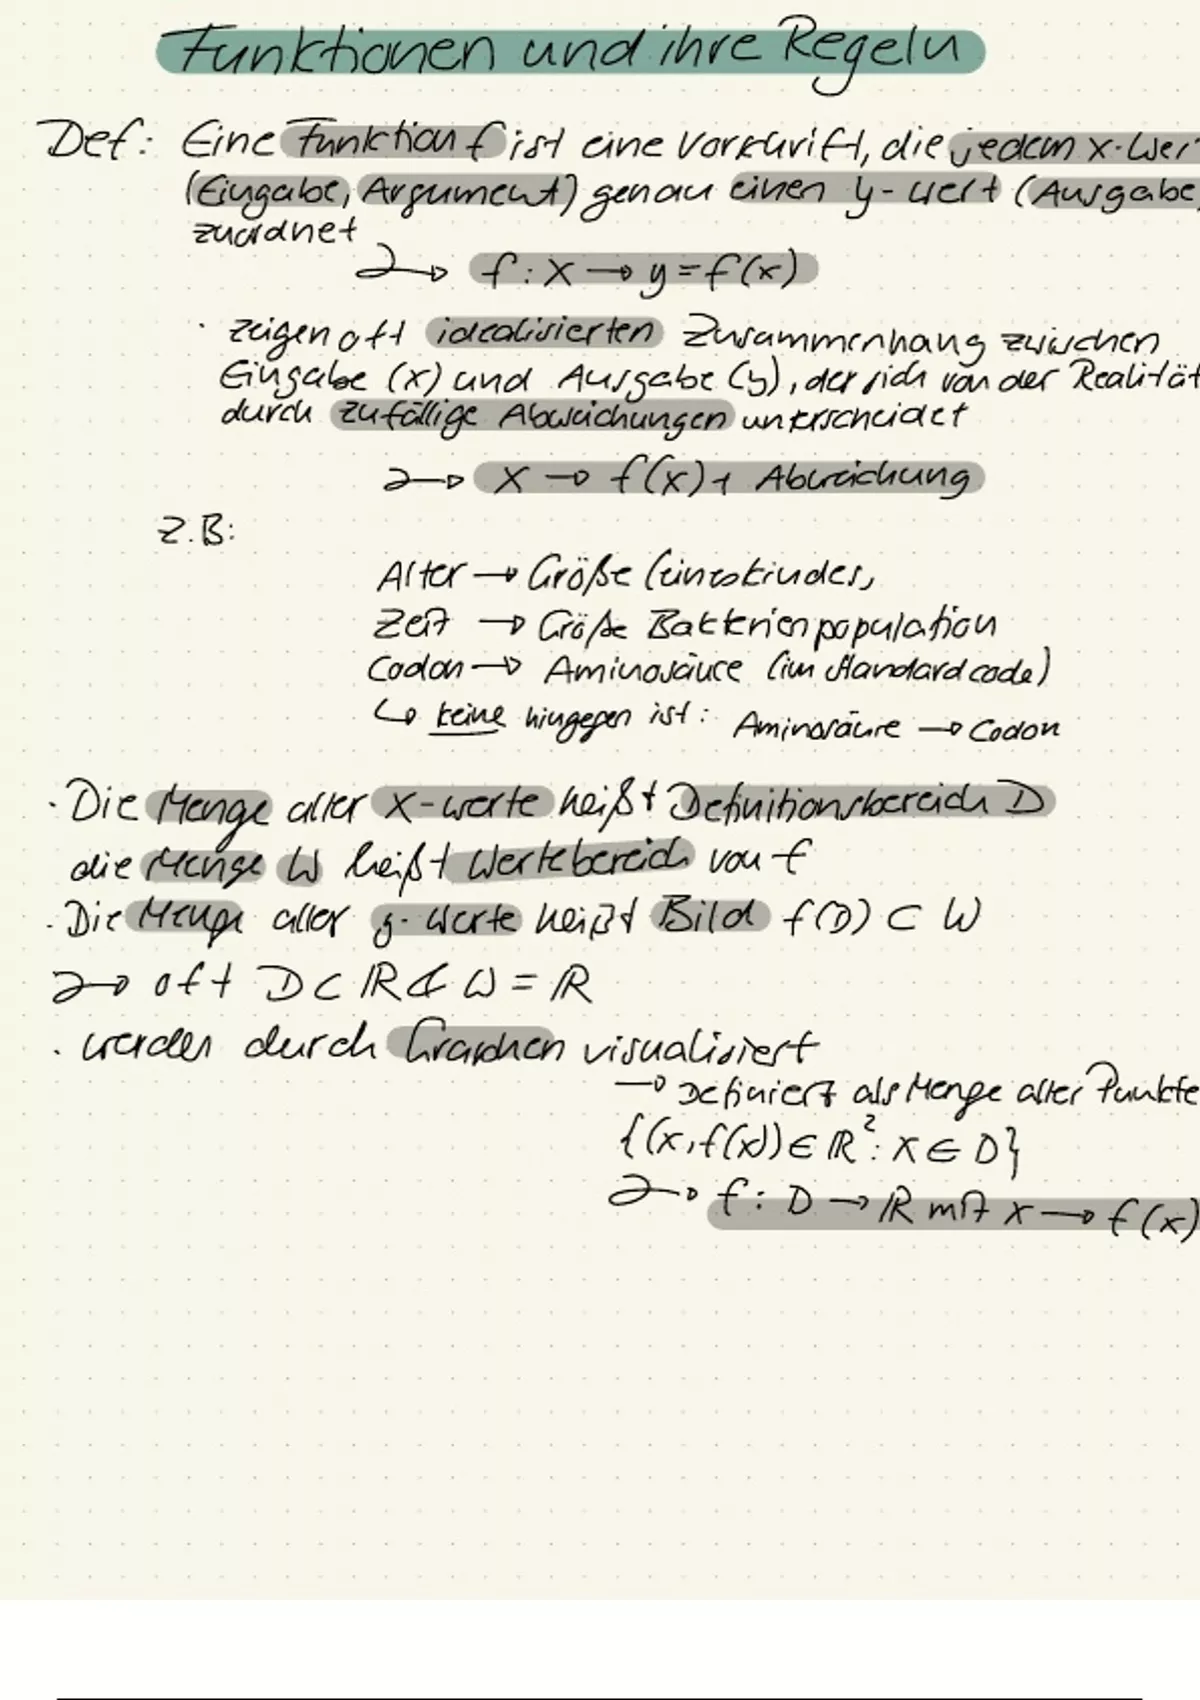 Funktionen und ihre Regeln
Def: Eine Funktion f ist eine Vorschrift, die jedem x-Wer
(Eingabe, Argument) genau einen y-Wert (Ausgabe,
zuordnet
→ f: x → y = f(x)
· zeigen oft idealisierten Zusammenhang zwischen
Eingabe (x) und Ausgabe (y), der sich von der Realität
durch zufällige Abweichungen unterscheidet
→ x → f(x) + Abweichung
z.B:
Alter → Größe (eines Kindes,
Zeit → Größe Bakterienpopulation
Codon → Aminosäure (im Standardcode)
↳ keine hingegen ist: Aminosäure → Codon
· Die Menge aller x-Werte heißt Definitionsbereich D
die Menge W heißt Wertebereich von f
· Die Menge aller y-Werte heißt Bild f(D) ⊂ W
→ oft D ⊂ ℝ & W = ℝ
· werden durch Graphen visualisiert
→ Definiert als Menge aller Punkte
{(x, f(x)) ∈ ℝ²: x ∈ D}
→ f: D → ℝ mit x → f(x)